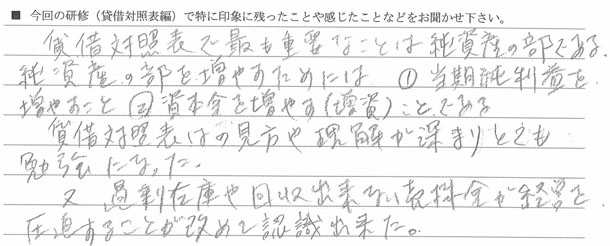 ■ 今回の研修（貸借対照表編）で特に印象に残ったことや感じたことなどをお聞かせ下さい。
貸借対照表で最も重要なことは純資産の部である。
純資産の部を増やすためには ① 当期純利益を
増やすこと ② 資本金を増やす（増資）ことである
貸借対照表はの見方や理解が深まりとても
勉強になった。
又 過剰在庫や回収出来ない売掛金が経営を
圧迫することが改めて認識出来た。